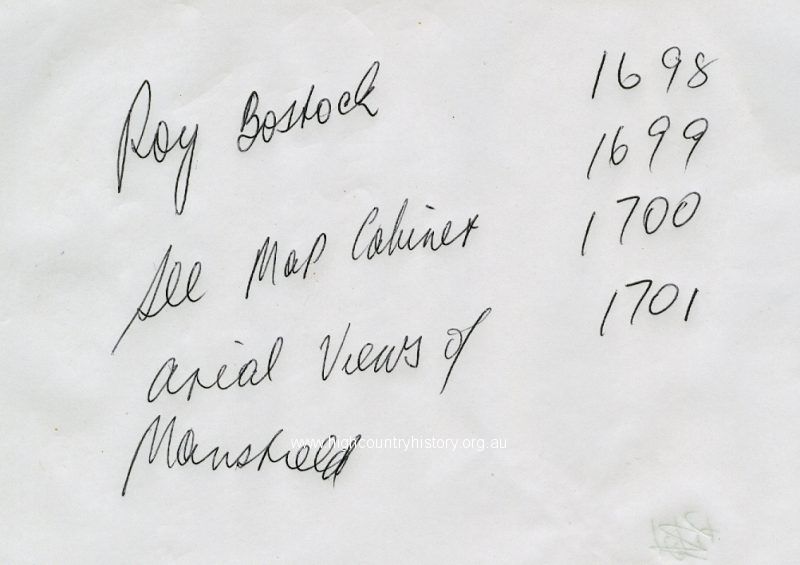 Roy Bostock
1698
1699
See Map Cabinet
1700
1701
arial Views of
Mansfield
www.highcountryhistory.org.au